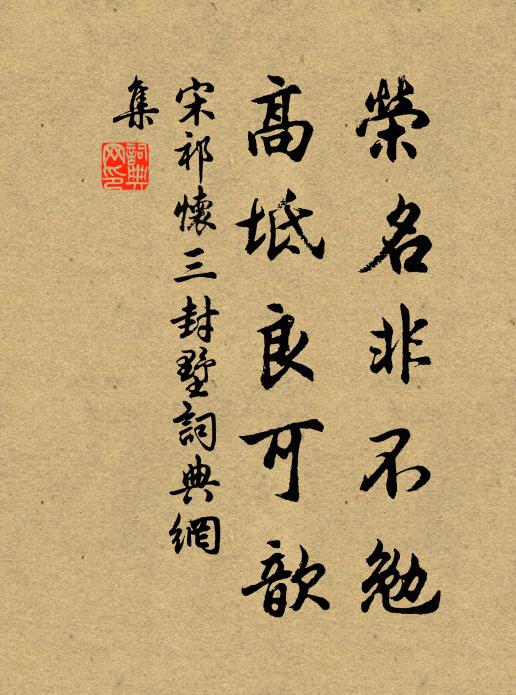 榮名非不勉
高坻良可歆
宋祁懷三封墅詞典網
集
詞典網印